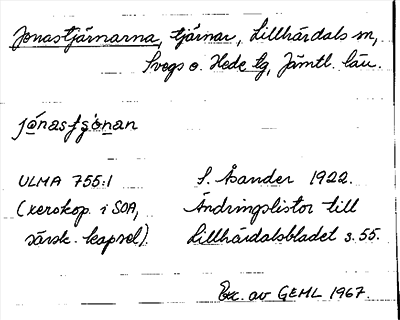 Jonastjärnarna, tjärnar, Lillhärdals sn,
Svegs o. Hede tg, Jämtl. län.
jónasfsjònan
ULMA 755:1 S. Åsander 1922.
(xerokop. i SOA, Ändringslistor till
särsk. kapsel). Lillhärdalsbladet s. 55.
Exc. av GEML 1967.